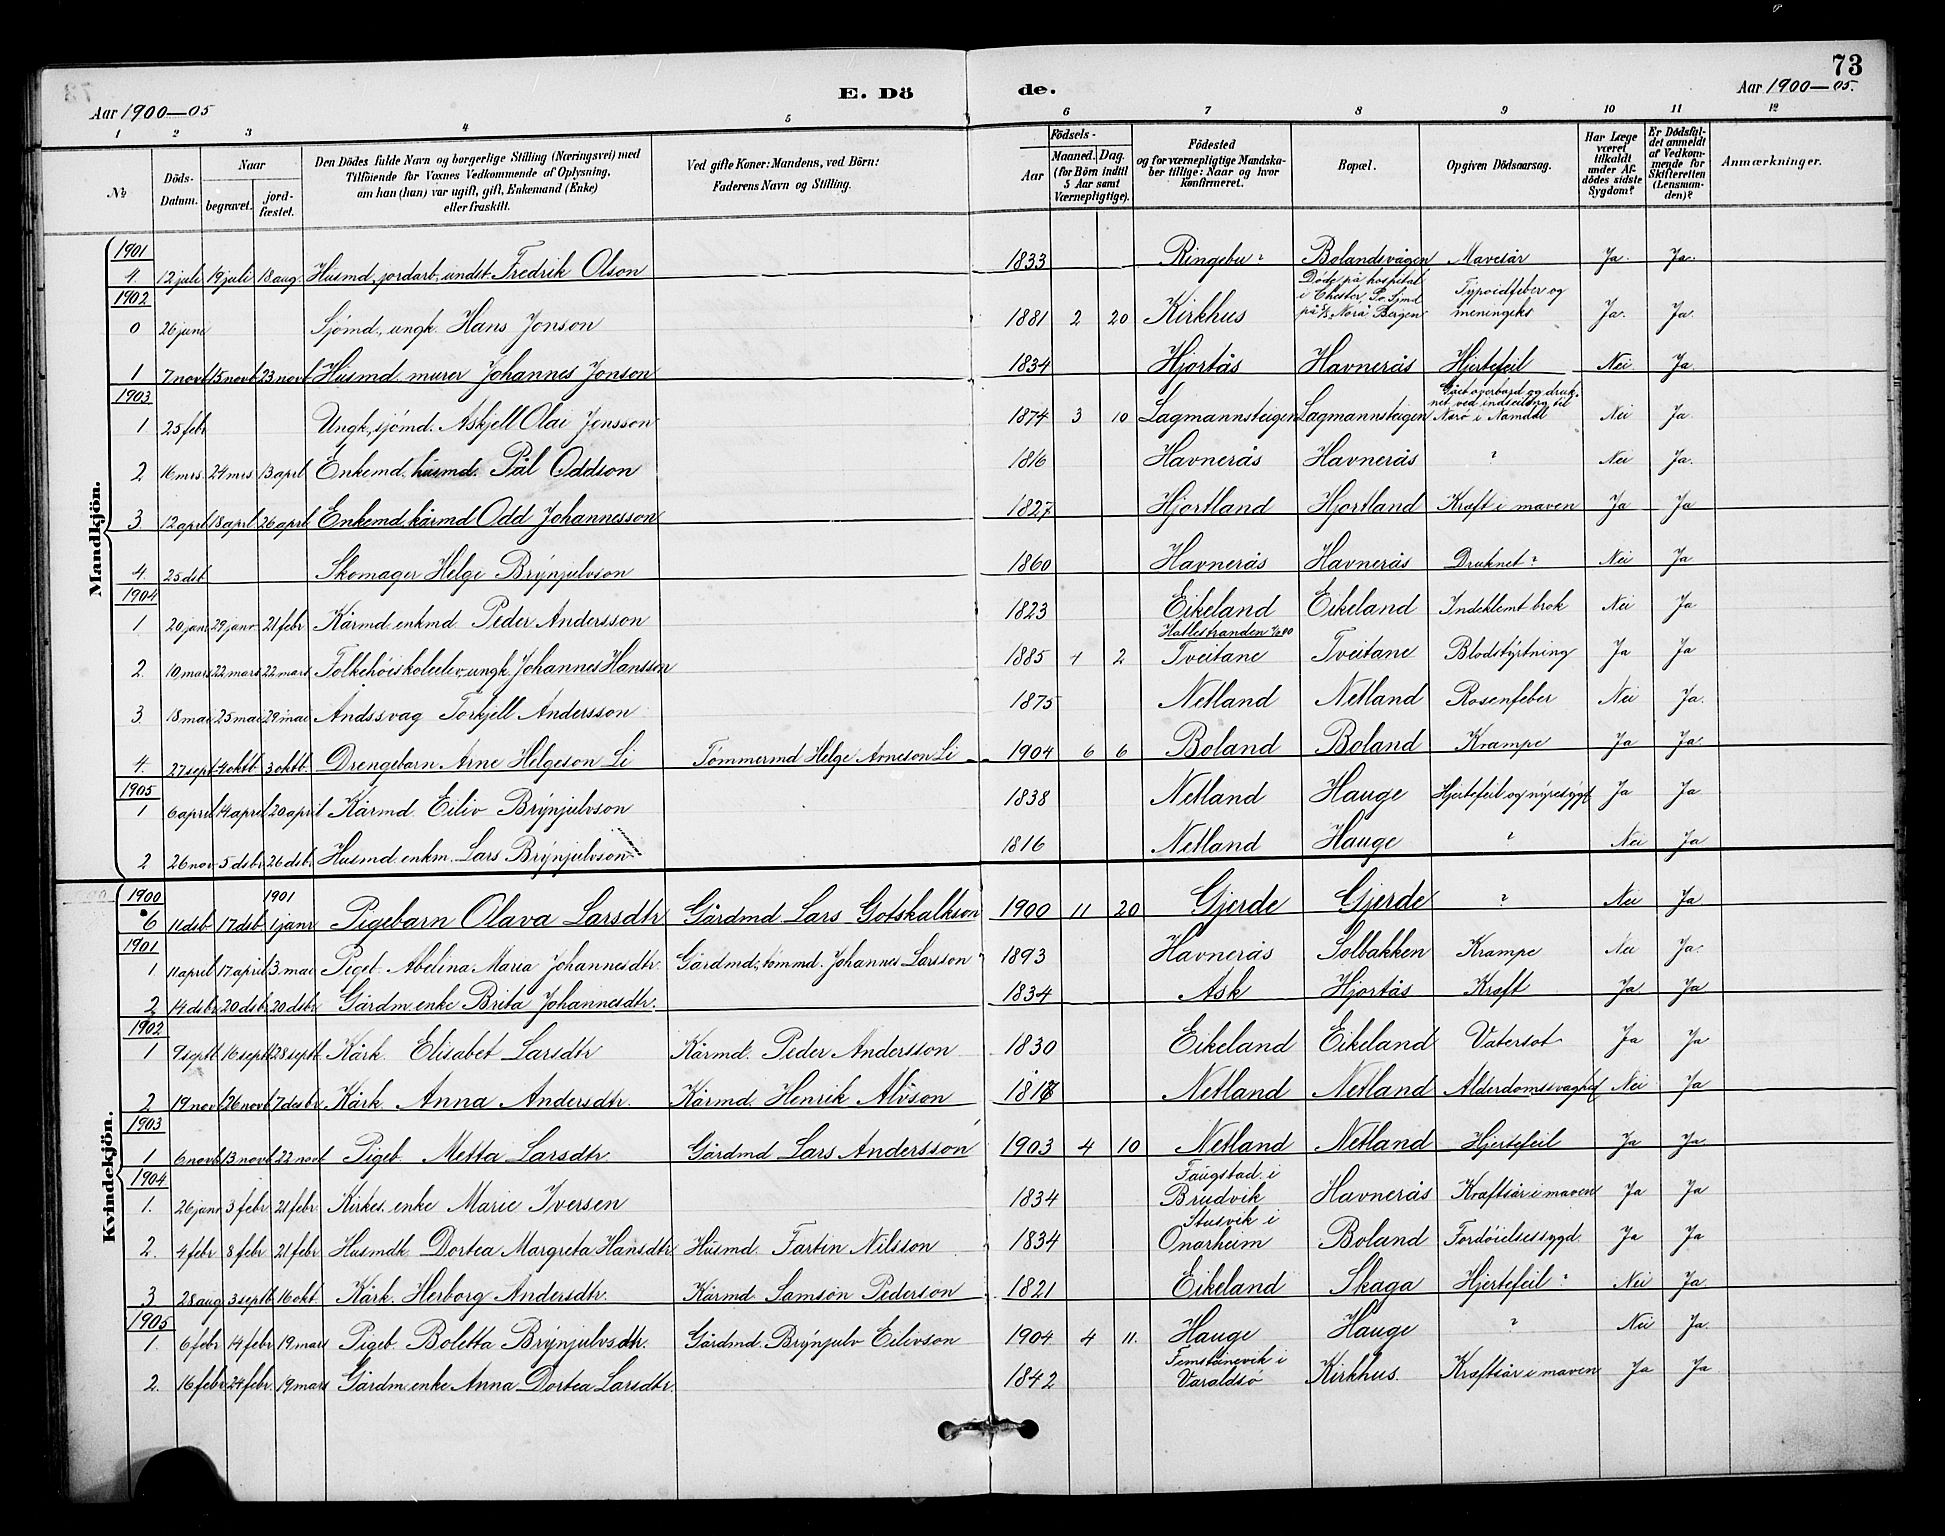 73
Aar 1900—05
E. Dö de.
Aar 1900—05.
1 2 3 4 5 6 7 8 9 10 11 12
No
Döds-Datum.
Naar
begravet. jordfæstet.
Den Dödes fulde Navn og borgerlige Stilling (Næringsvei) med
Tilföiende for Voxnes Vedkommende af Oplysning,
om han (hun) var ugift, gift, Enkemand (Enke)
eller fraskilt.
Ved gifte Koner: Mandens, ved Börn:
Faderens Navn og Stilling.
Födsels-
Aar Maaned. Dag.
(for Börn indtil 5 Aar samt Værnepligtige).
Födested
og for værnepligtige Mandskaber tillige: Naar og hvor konfirmeret.
Bopæl.
Opgiven Dödsaarsag.
Har Læge været tilkaldt under Afdödes sidste Sygdom?
Er Dödsfaldet anmeldt af Vedkommende for Skifteretten (Lensmanden)?
Anmærkninger.
Mandkjön.
1901
4. 12 juli 19 juli 18 aug. Husmd, jordarb, undst. Fredrik Olson 1833 Ringebu? Bolandsvågen Mavesår Ja. Ja.
1902
0 26 juni Sjömd, ungk. Hans Jonson 1881 2 20 Kirkhus Döde på hospital i Chester, Sjmd på Norä Bergen Typoidfeber og meningeks Ja. Ja.
1 7 novb 15 novb 23 novb Husmd. murer Johannes Jonson 1834 Hjortås Havnerås Hjertefeil Nei Ja.
1903
1 25 febr Ungk, sjömd. Askjell Olai Jensson 1874 3 10 Lagmannsteigen Lagmannsteigen Gået overbord og druknet ved indseiling til Narö i Namdal Nei Ja.
2 16 mrs. 24 mrs 13 april Enkemd. husmd. Pål Oddson 1816 Havnerås Havnerås ? Nei Ja.
3 12 aprl 18 aprl 26 aprl Enkemd kårmd Odd Johannesson 1827 Hjortland Hjortland Kræft i maven Ja Ja
4. 25 dsb Skomager Helge Brynjulvson 1860 Havnerås Havnerås Druknet? Nei Ja
1904
1. 20 janr 29 janr 21 febr Kårmd. enkmd Peder Andersson 1823 Eikeland Eikeland Indeklemt brok Nei Ja
2. 10 mars 22 mars 22 mars Folkehöiskoleelev, ungk. Johannes Hansson 1885 4 2 Hatlestranden 00 Tveitane Tveitane Blodstyrtning Ja Ja
3. 18 mai 25 mai 29 mai Andssvag Torkjell Andersson 1875 Netland Netland Rosenfeber Nei Ja.
4. 27 sept 4 oktb. 3 oktb. Drengebarn Arne Helgeson Li Tömmermd Helge Arneson Li 1904 6 6 Boland Boland Krampe Ja Ja
1905
1 6 april 14 april 20 april Kårmd. Eiliv Brynjulvson 1838 Netland Hauge Hjertefeil og nyresygd Ja Ja
2 26 nov 5 dsbr 26 dsb. Husmd. enkm. Lars Brynjulvson 1816 Netland Hauge ? Nei Ja
Kvindekjön.
1900 1901
6 11 dsb 17 dsb 1 janr Pigebarn Olava Larsdtr Gårdmd Lars Gotskalkson 1900 11 20 Gjerde Gjerde ? Nei Ja
1901
1 11 april 17 april 3 mai Pigeb. Abelina Maria Johannesdtr. Gårdmd, tömmd. Johannes Larsson 1893 Havnerås Solbakken Krampe Nei Ja.
2 14 dsbr 20 dsbr 20 dsbr Gårdm. enke Brita Johannesdtr. 1834 Ask Hjortås Kræft Ja. Ja
1902
1 9 septb 16 septb 28 septb Kårk. Elisabet Larsdtr Kårmd. Peder Andersson 1830 Eikeland Eikeland Vatersot Ja Ja
2 19 nov 26 novb 7 desbr Kårk. Anna Andersdtr. Kårmd. Henrik Alvson Netland Netland Alderdomssvaghed Nei Ja
1903
1 6 novb 13 novb 22 novb Pigeb. Metta Larsdtr Gårdmd Lars Andersson 1903 4 10 Netland Netland Hjertefeil Ja Ja
1904
1. 26 janr 3 febr 21 febr Kirkes. enke Marie Iversen 1834 Faugstad i Brudvik Havnerås Kræftsår i maven Ja Ja
2. 4 febr 8 febr 21 febr Husmdk Dortea Margreta Hansdtr Husmd. Fartin Nilsson 1834 Stusvik i Onarheim Boland Fordöielsessygd. Ja Ja
3 28 aug 3 septb 16 okt. Kårk. Herborg Andersdtr. Kårmd Samson Pederson 1821 Eikeland Skaga Hjertefeil? Nei Ja.
1905
1. 6 febr 14 febr 19 mars Pigeb. Boletta Brynjulvsdtr. Gårdmd. Brynjulv Eilivson 1904 4 11. Hauge Hauge ? Nei Ja.
2. 16 febr 24 febr. 19 mars Gårdm. enke Anna Dortea Larsdtr. 1842 Femsteinevik i Varaldsö Kirkhus. Kræftsår i maven Ja Ja